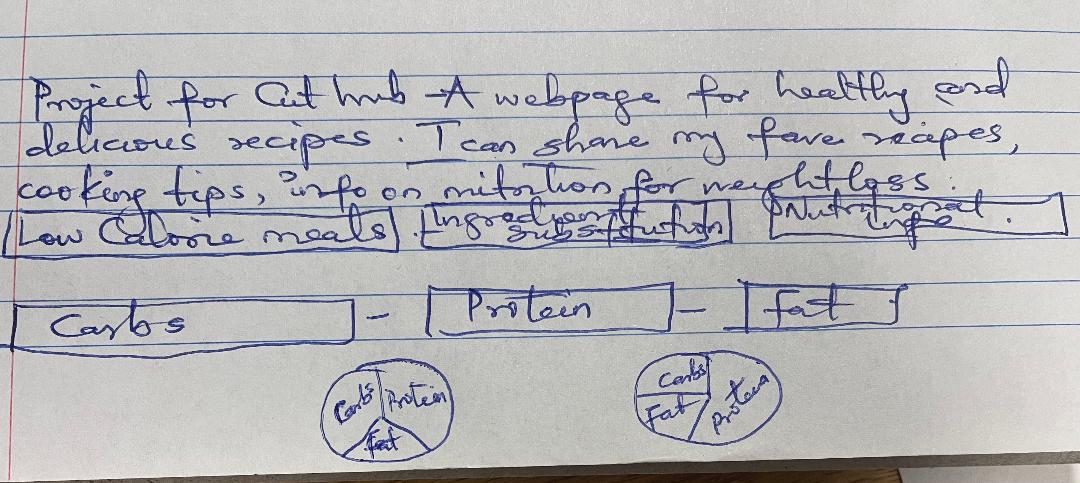 Project for Cut hub - A webpage for healthy and
delicious recipes. I can share my fave recipes,
cooking tips, info on nitrition for weight loss.
Low Calorie meals. Ingredient substitution Nutritional info.
Carbs - Protein - fat
Carbs Protein Fat
Carbs Fat Protein